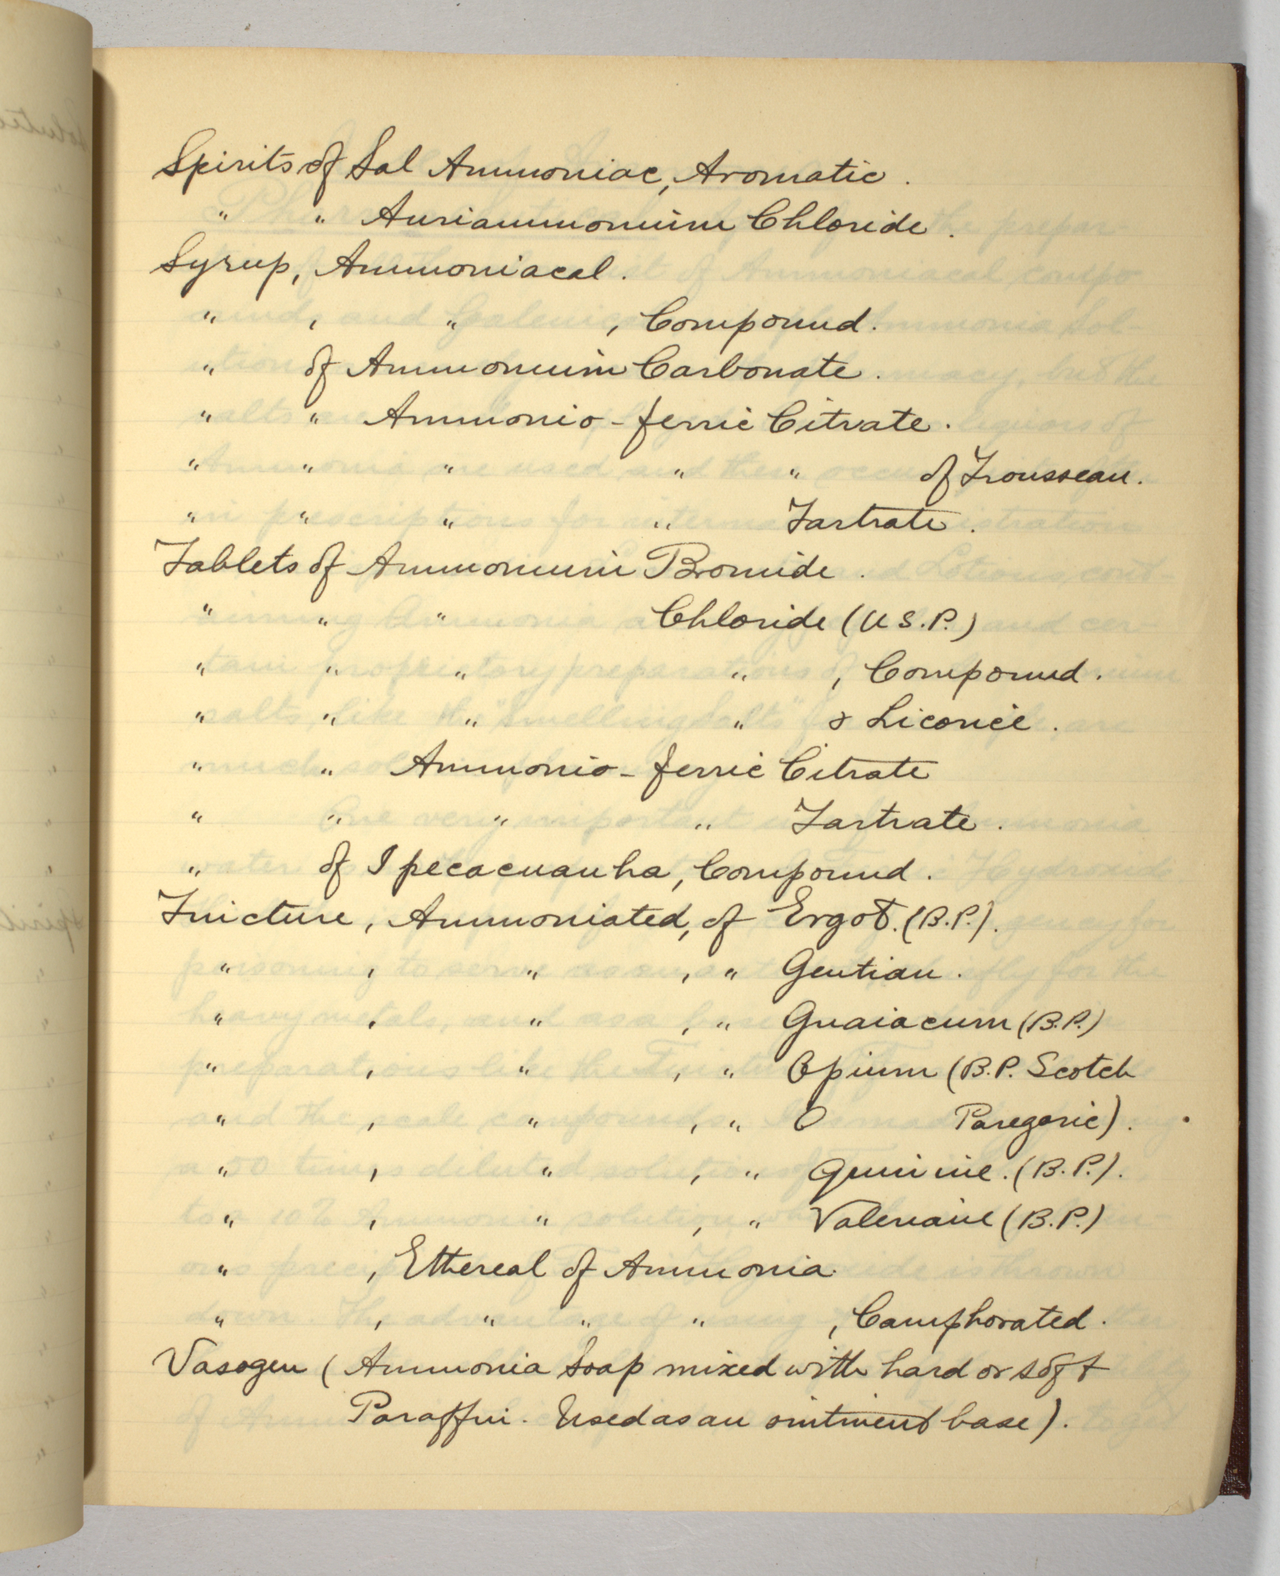 Spirits of Sal Ammoniac, Aromatic.
" " Auriammonium Chloride.
Syrup, Ammoniacal.
" , " , Compound.
" of Ammonium Carbonate.
" " Ammonio-ferric Citrate.
" " " " " of Trousseau.
" " " " Tartrate.
Tablets of Ammonium Bromide.
" " " Chloride (U.S.P.)
" " " " , Compound.
" " " " & Licorice.
" " Ammonio-ferric Citrate
" " " " Tartrate.
" of Ipecacuanha, Compound.
Tincture, Ammoniated, of Ergot. (B.P.).
" , " , " Gentian.
" , " , " Guaiacum (B.P.)
" , " , " Opium (B.P. Scotch
" , " , " O Paregoric).
" , " , " Quinine. (B.P.).
" , " , " Valeriane (B.P.)
" , Ethereal of Ammonia.
" , " " " , Camphorated.
Vasogen (Ammonia Soap mixed with hard or soft
Paraffin. Used as an ointment base).